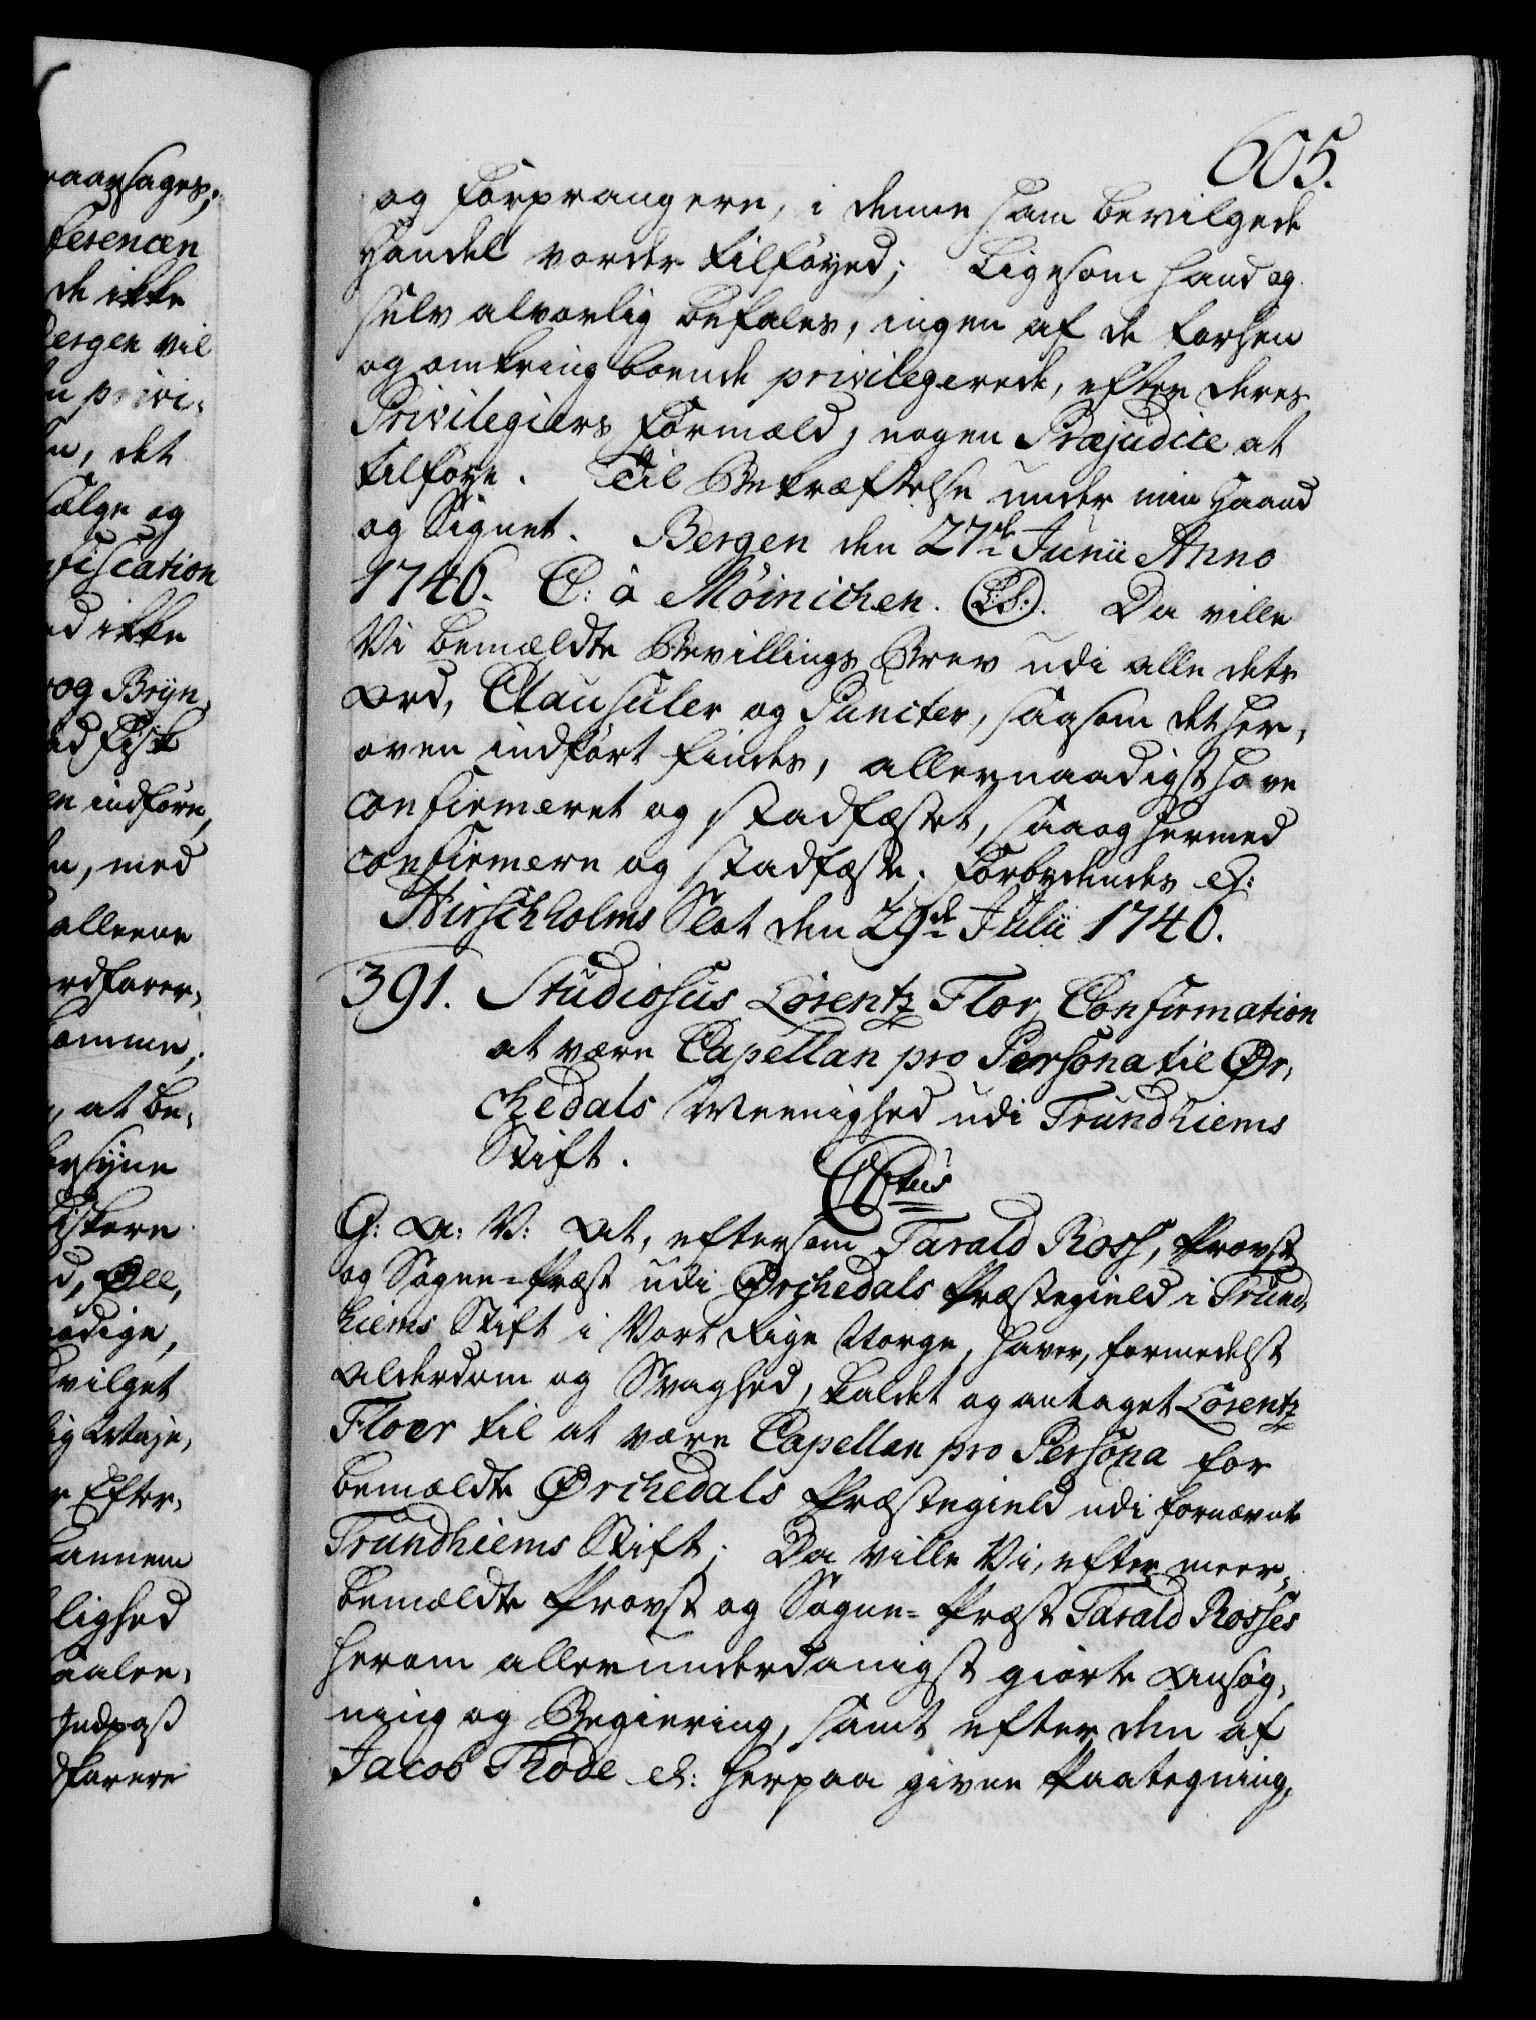 605.
og Forprangere, i denne ham bevilgede
Handel vorder tilføyed; Ligesom hand og
selv alvorlig befales, ingen af de forhen
og omkring boende privilegerede, efter deres
Privilegiers Formæld, nogen Præjudice at
tilføye. Til Bekræftelse under min Haand
og Signet. Bergen den 27de Junii Anno
1746. C: â Möinichen. (L.S:). Da ville
Vi bemældte Bevillings Brev udi alle dets
Ord, Clausuler og Puncter, saasom det her,
oven indført findes, allernaadigst have
confirmeret og stadfæstet, saa og hermed
confirmere og stadfæste. Forbydendes et:
Hirschholms Slot den 29de Julii 1746.
391. Studiosus Lorentz Flor Confirmation
at være Capellan pro Persona til Ør,
chedals Meenighed udi Trundhiems
Stift.
G: A: V: At, eftersom Tarald Ross, Provst
og Sogne-Præst udi Ørchedals Præstegield i Trund,
hiems Stift i Vort Rige Norge, haver, formedelst
Alderdom og Svaghed, kaldet og antaget Lorentz
Floer til at være Capellan pro Persona for
bemældte Ørchedals Præstegield udi fornævnte
Trundhiems Stift; Da ville Vi, efter meer,
bemældte Provst og Sogne-Præst Tarald Rosses
herom allerunderdanigst giorte Ansøg,
ning og Begiering, samt efter den af
Jacob Thode et: herpaa givne Paategning,
raarsages;
ferencen
de ikke
Bergen vil
n privi,
n, det
sælge og
nfiscation
ed ikke
og Bryn,
ed Fisk
en indføre,
n, med
alleene
ordfarer,
komme,
, at be,
ersyne
diskere
d, Øll,
nødige,
bevilget
lig Maje,
r Efter,
hannem
lighed
aalen,
Indpass
dfarere